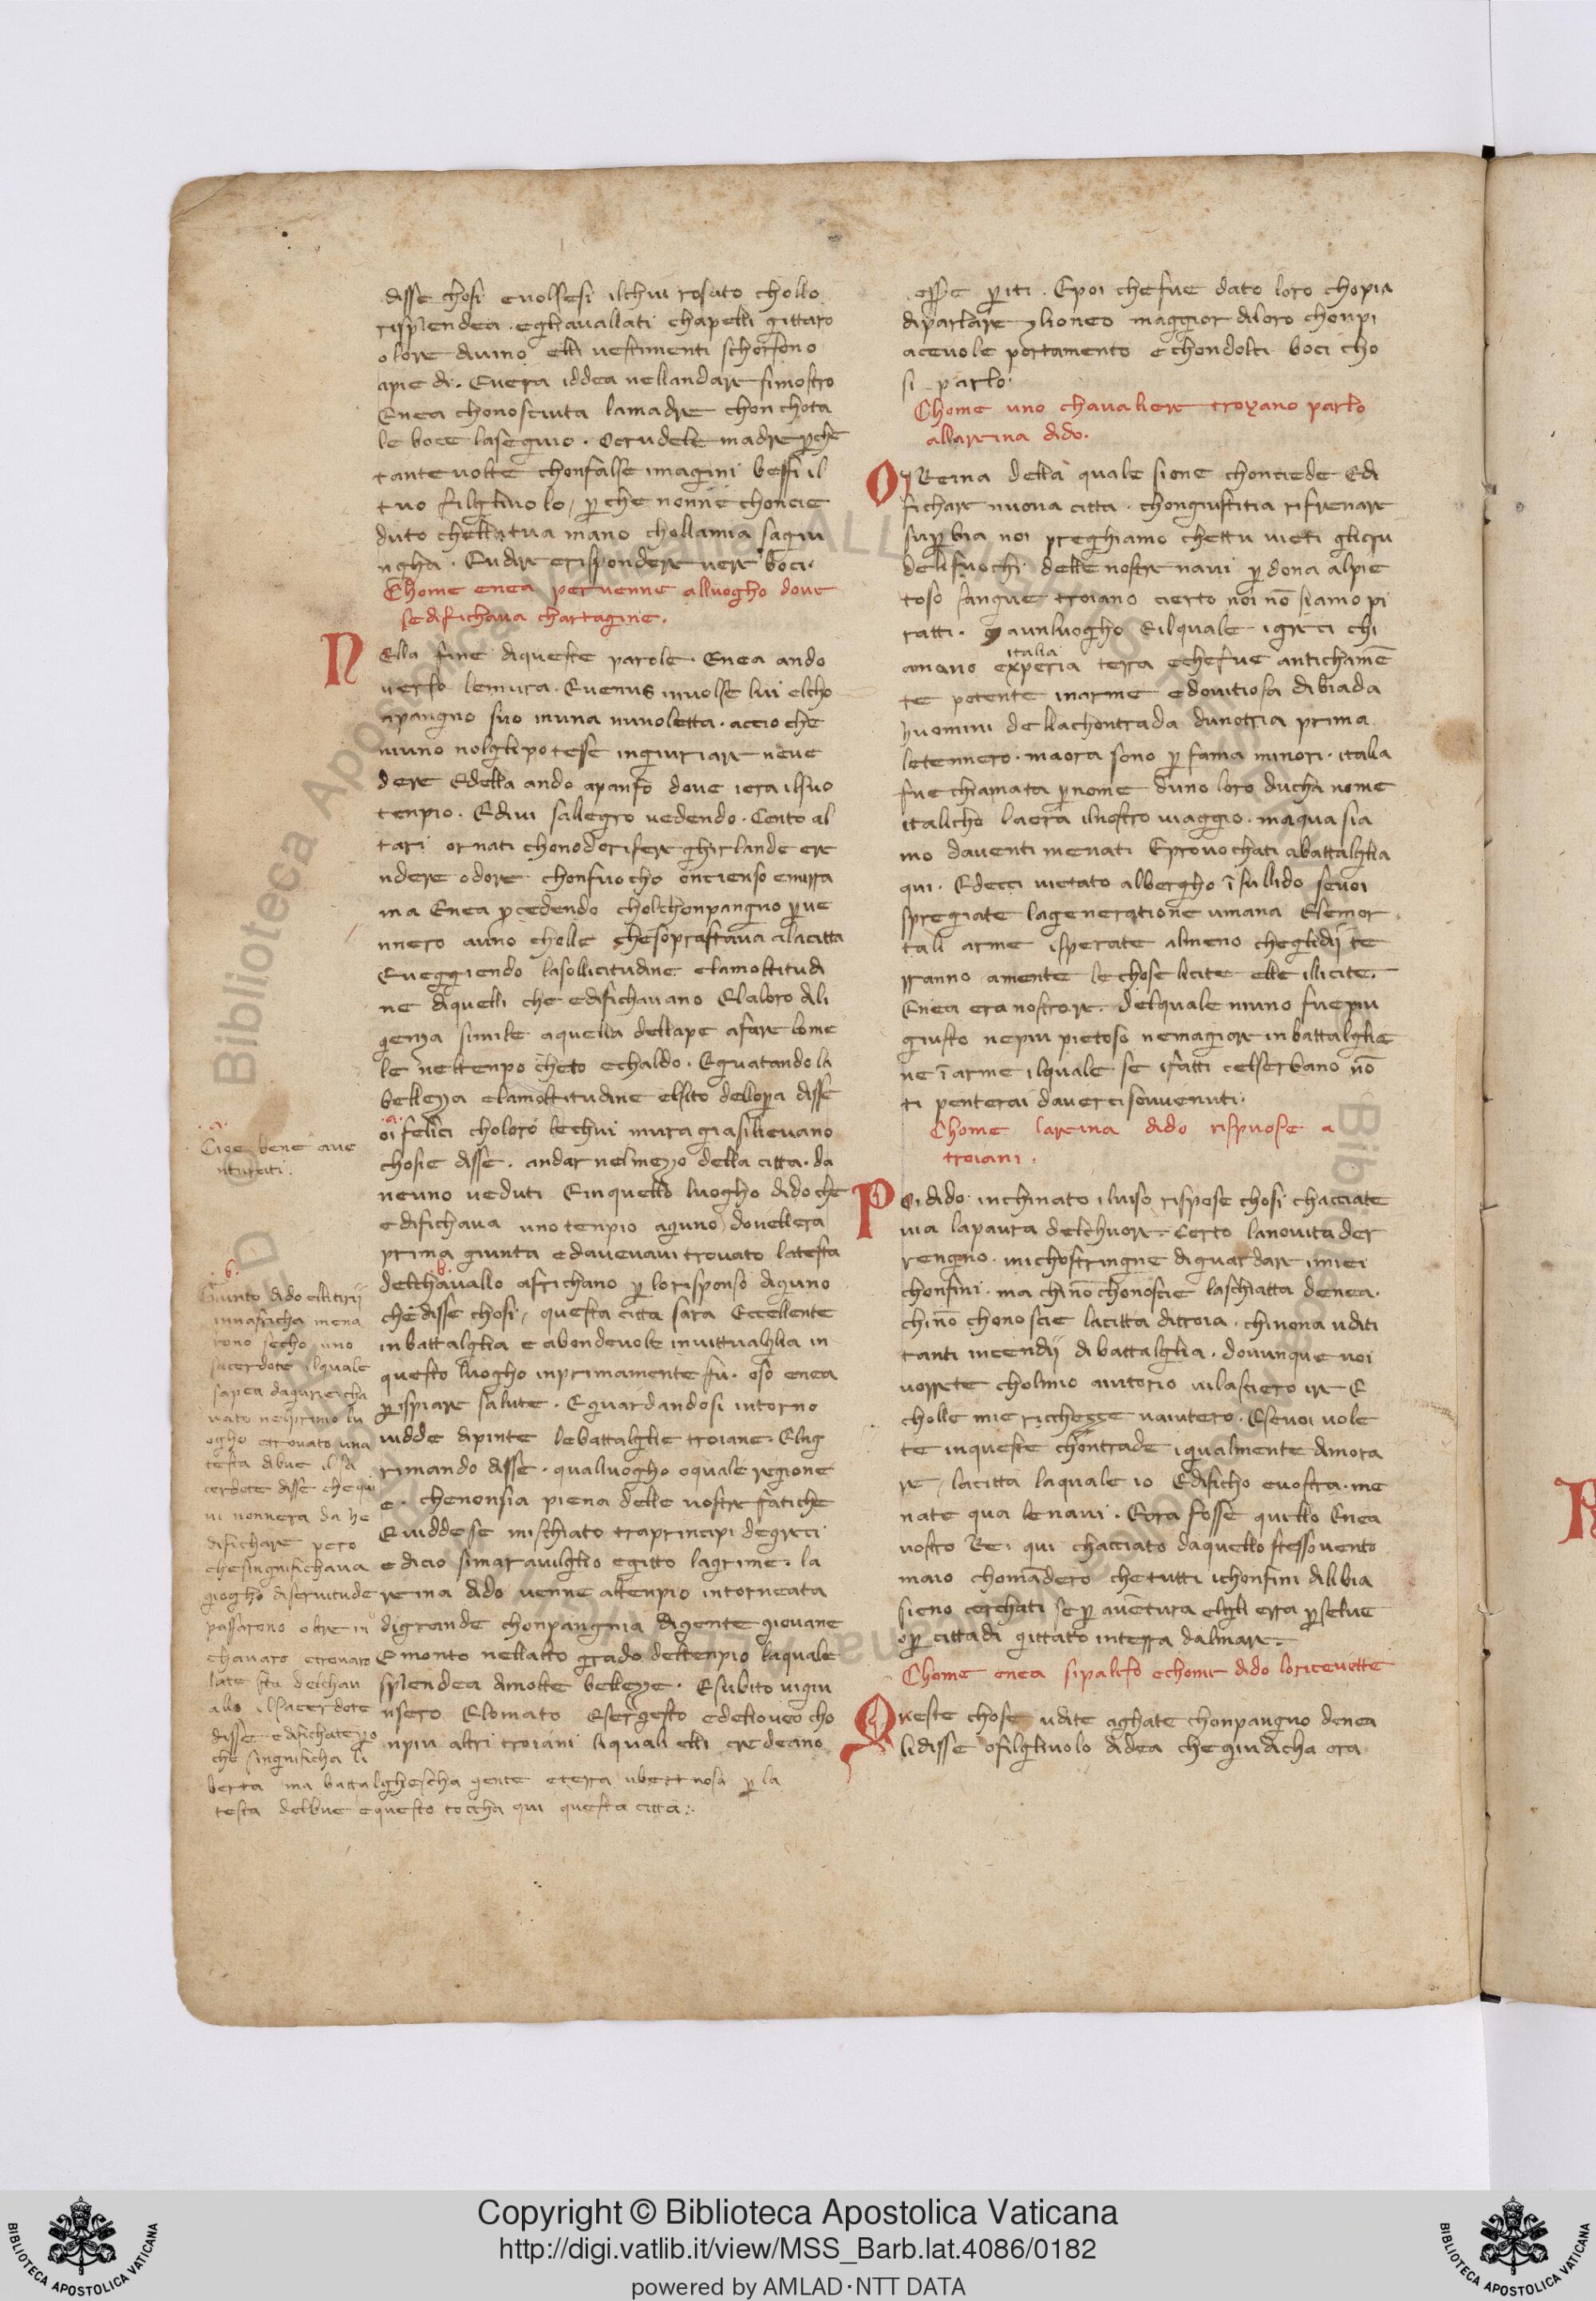 disse chosi euolsesi ilchui rosato chollo
risplendea . eghauallati chapelli gittaro
olore diuino elli uestimenti schorsono
apiedi . Euera iddea nellandare simostro
Enea chonosciuta lamadre chon chota
le boce laseguio . Ocrudele madre ꝑche
tante uolte chonfalse imagini beffi il
tuo filgliuolo / ꝑ che nonne choncie
duto chellatua mano chollamia sagiu
ngha . Eudire erispondere uere boci .
Chome enea peruenne alluogho doue
sedifichaua chartagine .
NElla fine diqueste parole . Enea ando
uerso lemura . Euenus inuolse lui elcho
npangno suo inuna nuuoletta . accio che
niuno nolglipotesse ingiuriare neue
dere Edella ando apanfo doue iera ilsuo
tenpio . Ediui sallegro uedendo . Cento al
tari ornati chonodorifere ghirlande ere
ndere odore chonfuocho oncienso emirra
ma Enea ꝓcedendo cholchonpangno ꝑue
nnero auno cholle chesoprastaua alacitta
Eueggiendo lasollicitudine elamoltitudi
ne diquelli che edifichauano Elaloro dili
genza simile aquella dellape afare lome
le neltenpo cheto echaldo . Eguatando la
bellezza elamoltitudine elsito dellopa disse
.a.
oi felici choloro lechui mura giasilieuano
chosie disse . andar nelmezzo della citta . da
neuno ueduti Einquello luogho didoche
edifichaua uno tenpio agiuno douellera
prima giunta edaueuaui trouato latesta
.b.
delchauallo africhano ꝑ lorisponso digiuno
chedisse chosi / questa citta sara Eccellente
inbattalglia e abondeuole inuittualglia in
questo luogho inprimamente fu . oso enea
ꝑ ispiare salute . Eguardandosi intorno
uidde dipinte lebattalglie troiane . Elag
rimando disse . qualuogho oquale regione
e . chenonsia piena delle nostre fatiche
Euiddese mischiato traprincipi degreci
edicio simarauilglio egitto lagrime . la
reina dido uenne altenpio intorneata
digrande chonpangnia digente giouane
Emonto nellalto grado deltenpio laquale
splendea dimolte bellezze . Esubito uigiu
nsero Elomato Esergesto edelioneo cho
npiu altri troiani liquali elli credeano
.a.
Cioe bene aue
nturati .
.b.
Giunto dido elli tirij
innaficha mena
rono secho uno
sacerdote ilquale
sapea dagurieicha
uato nelprimo lu
ogho etrouato una
testa dibue il sa
cerdote disse chequi
ui nonnera da he
difichare pero
chesingnifichaua
giogho diseruitude
passarono oltre in
chauaro etrouaro
late sta delchau
allo ilsacerdote
disse edifichate ꝑo
che singnificha li
berta ma battalghescha gente eterra ubertuosa ꝑ la
testa delbue equesto toccha qui questa citta :.
essere ꝑiti . Epoi chefue dato loro chopia
diparlare ylioneo maggior diloro chonpi
aceuole portamento echondolci boci cho
si parlo .
Chome uno chaualiere troyano parlo
allareina dido .
OY Reina della quale sione chonciede Edi
fichare nuoua citta . chongiustitia rifrenare
supꝑbia noi preghiamo chettu uieti glicru
delifuochi delle nostre naui ꝑ dona alpie
toso sangue troiano cierto noi nō siamo pi
ratti . ꝯ aunluogho Eilquale igreci chi
italia
amano experia terra echefue antichamē
te potente inarme edouitiosa dibiada
huomini dellachontrada dunotria prima
letennero . maora sono ꝑ fama minori . italia
fue chiamata ꝑ nome duno loro ducha nome
italicho laera ilnostro uiaggio . maqua sia
mo dauenti menati Eprouochati abattalglia
qui . Edecci uietato albergho ī sullido seuoi
spregiate lageneratione umana Elemor
tali arme isperate almeno cheglidij te
rranno amente lechose licite elle illicite .
Enea era nostrore . delquale niuno fuepiu
giusto nepiu pietoso nemagiore inbattalglie
ne ī arme ilquale se ifatti celserbano nō
ti penterai dauercisouuenuti .
Chome lareina dido rispuose a
troiani .
POi dido inchinato iluiso rispose chosi chacciate
uia lapaura delchuore . Certo lanouita der
rengno . michostringne diguardare imiei
chonfini . ma chinō chonoscie laschiatta denea .
chinō chonoscie lacitta ditroia . chinona uditi
tanti incendij dibattalglia . douunque uoi
uorrete cholmio aiutorio uilasciero ire E
cholle mie ricchezze uaiutero . Eseuoi uole
te inqueste chontrade igualmente dimora
re / lacitta laquale io Edificho euostra . me
nate qua lenaui . Eora fosse quello Enea
uostro Re . qui chacciato daquello stesso uento
maio chomādero chetutti ichonfini dilibia
sieno cerchati se ꝑ auentura elgli erra ꝑ selue
oꝑ cittadi gittato interra dalmare .
Chome enea sipaleso echome dido loriceuette
QUeste chose udite aghate chonpangno denea
lidisse ofilgliuolo didea chegiudicha ora
Copyright © Biblioteca Apostolica Vaticana
http://digi.vatlib.it/view/MSS_Barb.lat.4086/0182
powered by AMLAD·NTT DATA
BIBLIOTECA APOSTOLICA VATICANA
BIBLIOTECA APOSTOLICA VATICANA